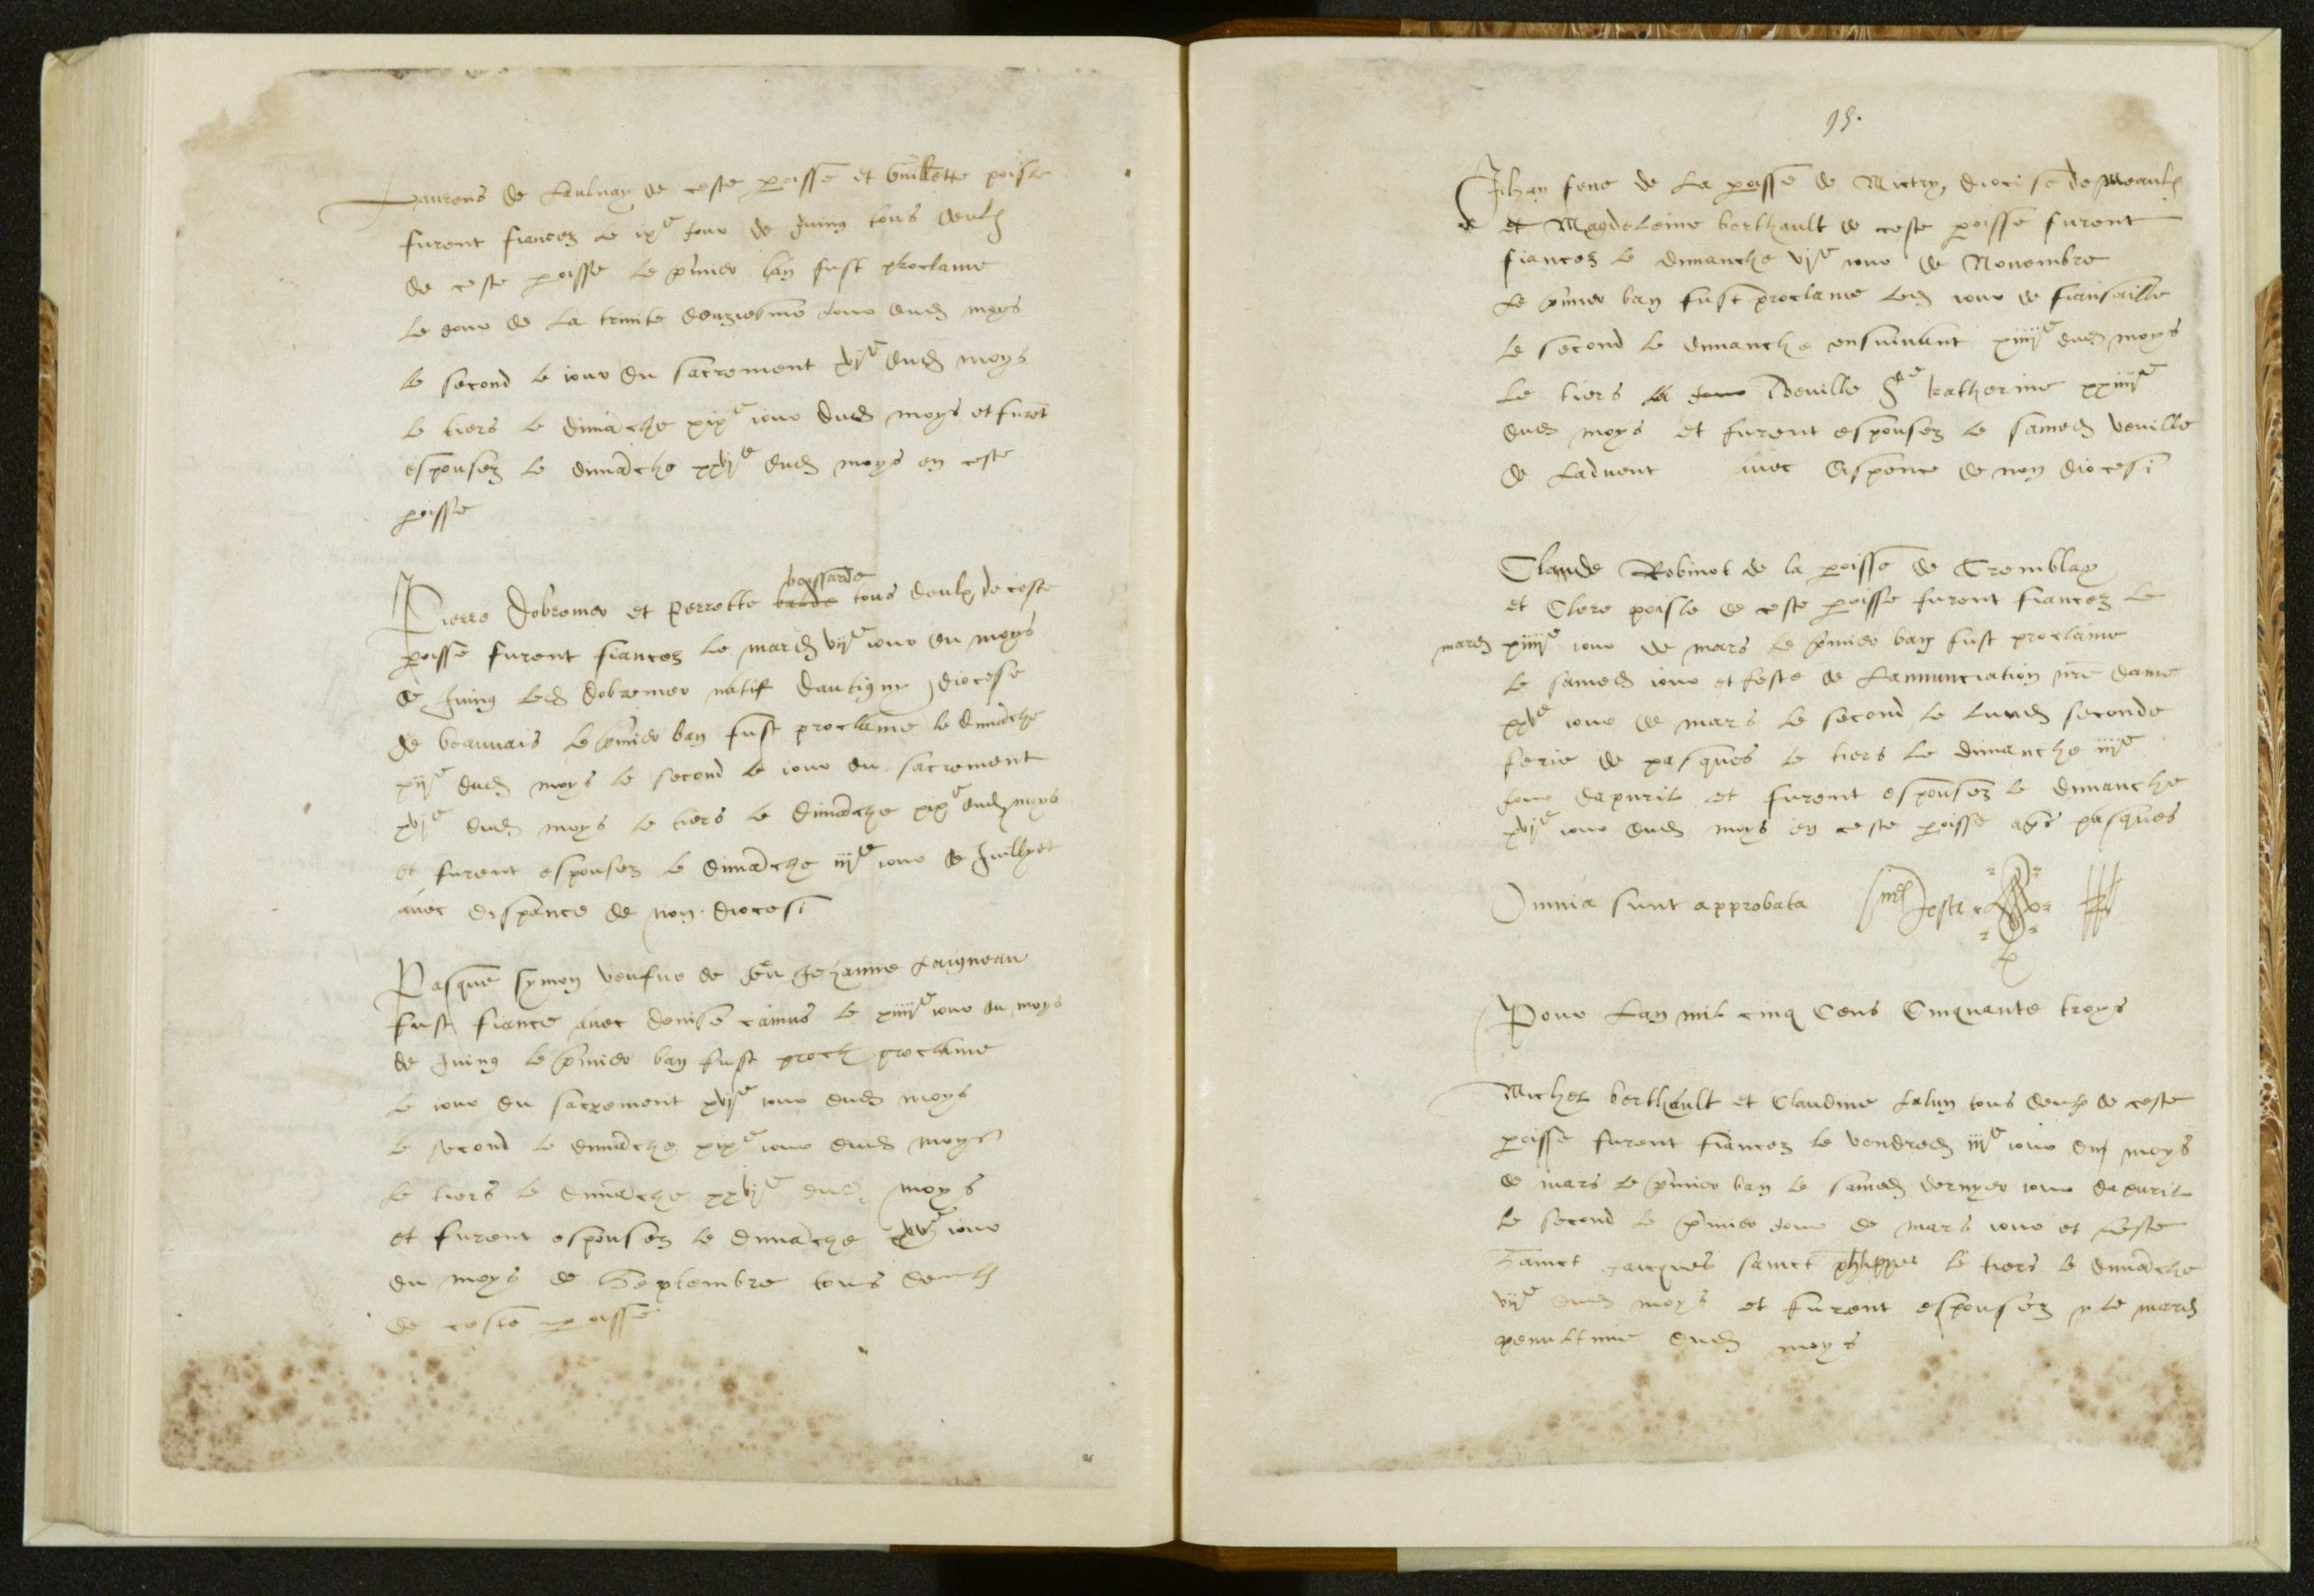 Laurens de Laulnay de ceste poisse et Guillette poisle
furent fiancez le ixe jour de Juing tous deulx
de ceste poisse le pmier ban fust proclame
le jour de la trinite douziesme jour dud moys
le second le jour du sacrement xvje dud moys
le tiers le dimache xixe jour dud moys et furet
espousez le dimache xxvje dud moys en ceste
poisse
boissarde
Pierre Dobremer et perrette barde tous deulx de ceste
poisse furent fiancez le mard vije jour du moys
de Juing led dobremer natif dautigny diocese
de beauvais le pmier ban fust proclame le dimache
xije dud moys le second le jour du sacrement
xvje dud moys le tiers le dimache xixe dud moys
et furent espousez le dimache iije jour de Juillyet
avec dispance de non diocesi
Pasque symon veufve de feu Jehanne Laigneau
fust fiance avec denise camus le xiiije jour du moys
de Juing le pmier ban fust proch proclame
le jour du sacrement xvje jour dud moys
le second le dimache xixe jour dud moys
le tiers le dimache xxvje dud moys
et furent espousez le dimache jour
du moys de Septembre tous deulx
de ceste poisse
95.
Jehan fene de la poisse de Mictry diocise de Meaulx
et Magdeleine berthault de ceste poisse furent
fiancez le dimanche vje jour de Novembre
le pmier ban fust proclame led jour de fiansaille
le second le dimanche ensuivant xiiie dud moys
le tiers la jour veuille Ste katherine xxiiije
dud moys et furent espousez le samed veuille
de Ladvent avec dispence de non diocesi
Claude Robinot de la poisse de Tremblay
et Clere poisle de ceste poisse furent fiancez le
mard xiiije jour de mars le pmier ban fust proclame
le samed jour et feste de Lannunciation nre dame
xxve jour de mars le second le lund seconde
ferie de pasques le tiers le dimanche
jour dapvril et furent espousez le dimanche
xvje jour dud moys en ceste poisse aps pasques
Omnia sunt approbata
Pour Lan mil cinq Cens Cinquante troys
Michel berthault et Claudine Lalun tous deulx de ceste
poisse furent fiancez le vendred iije jour du moys
de mars le pmier ban le samed dernyer jour dapvril
le second le pmier jour de mars jour et feste
sainct Jacques sainct phlippes le tiers le dimache
vije dud moys et furent espousez le mard
penultime dud moys